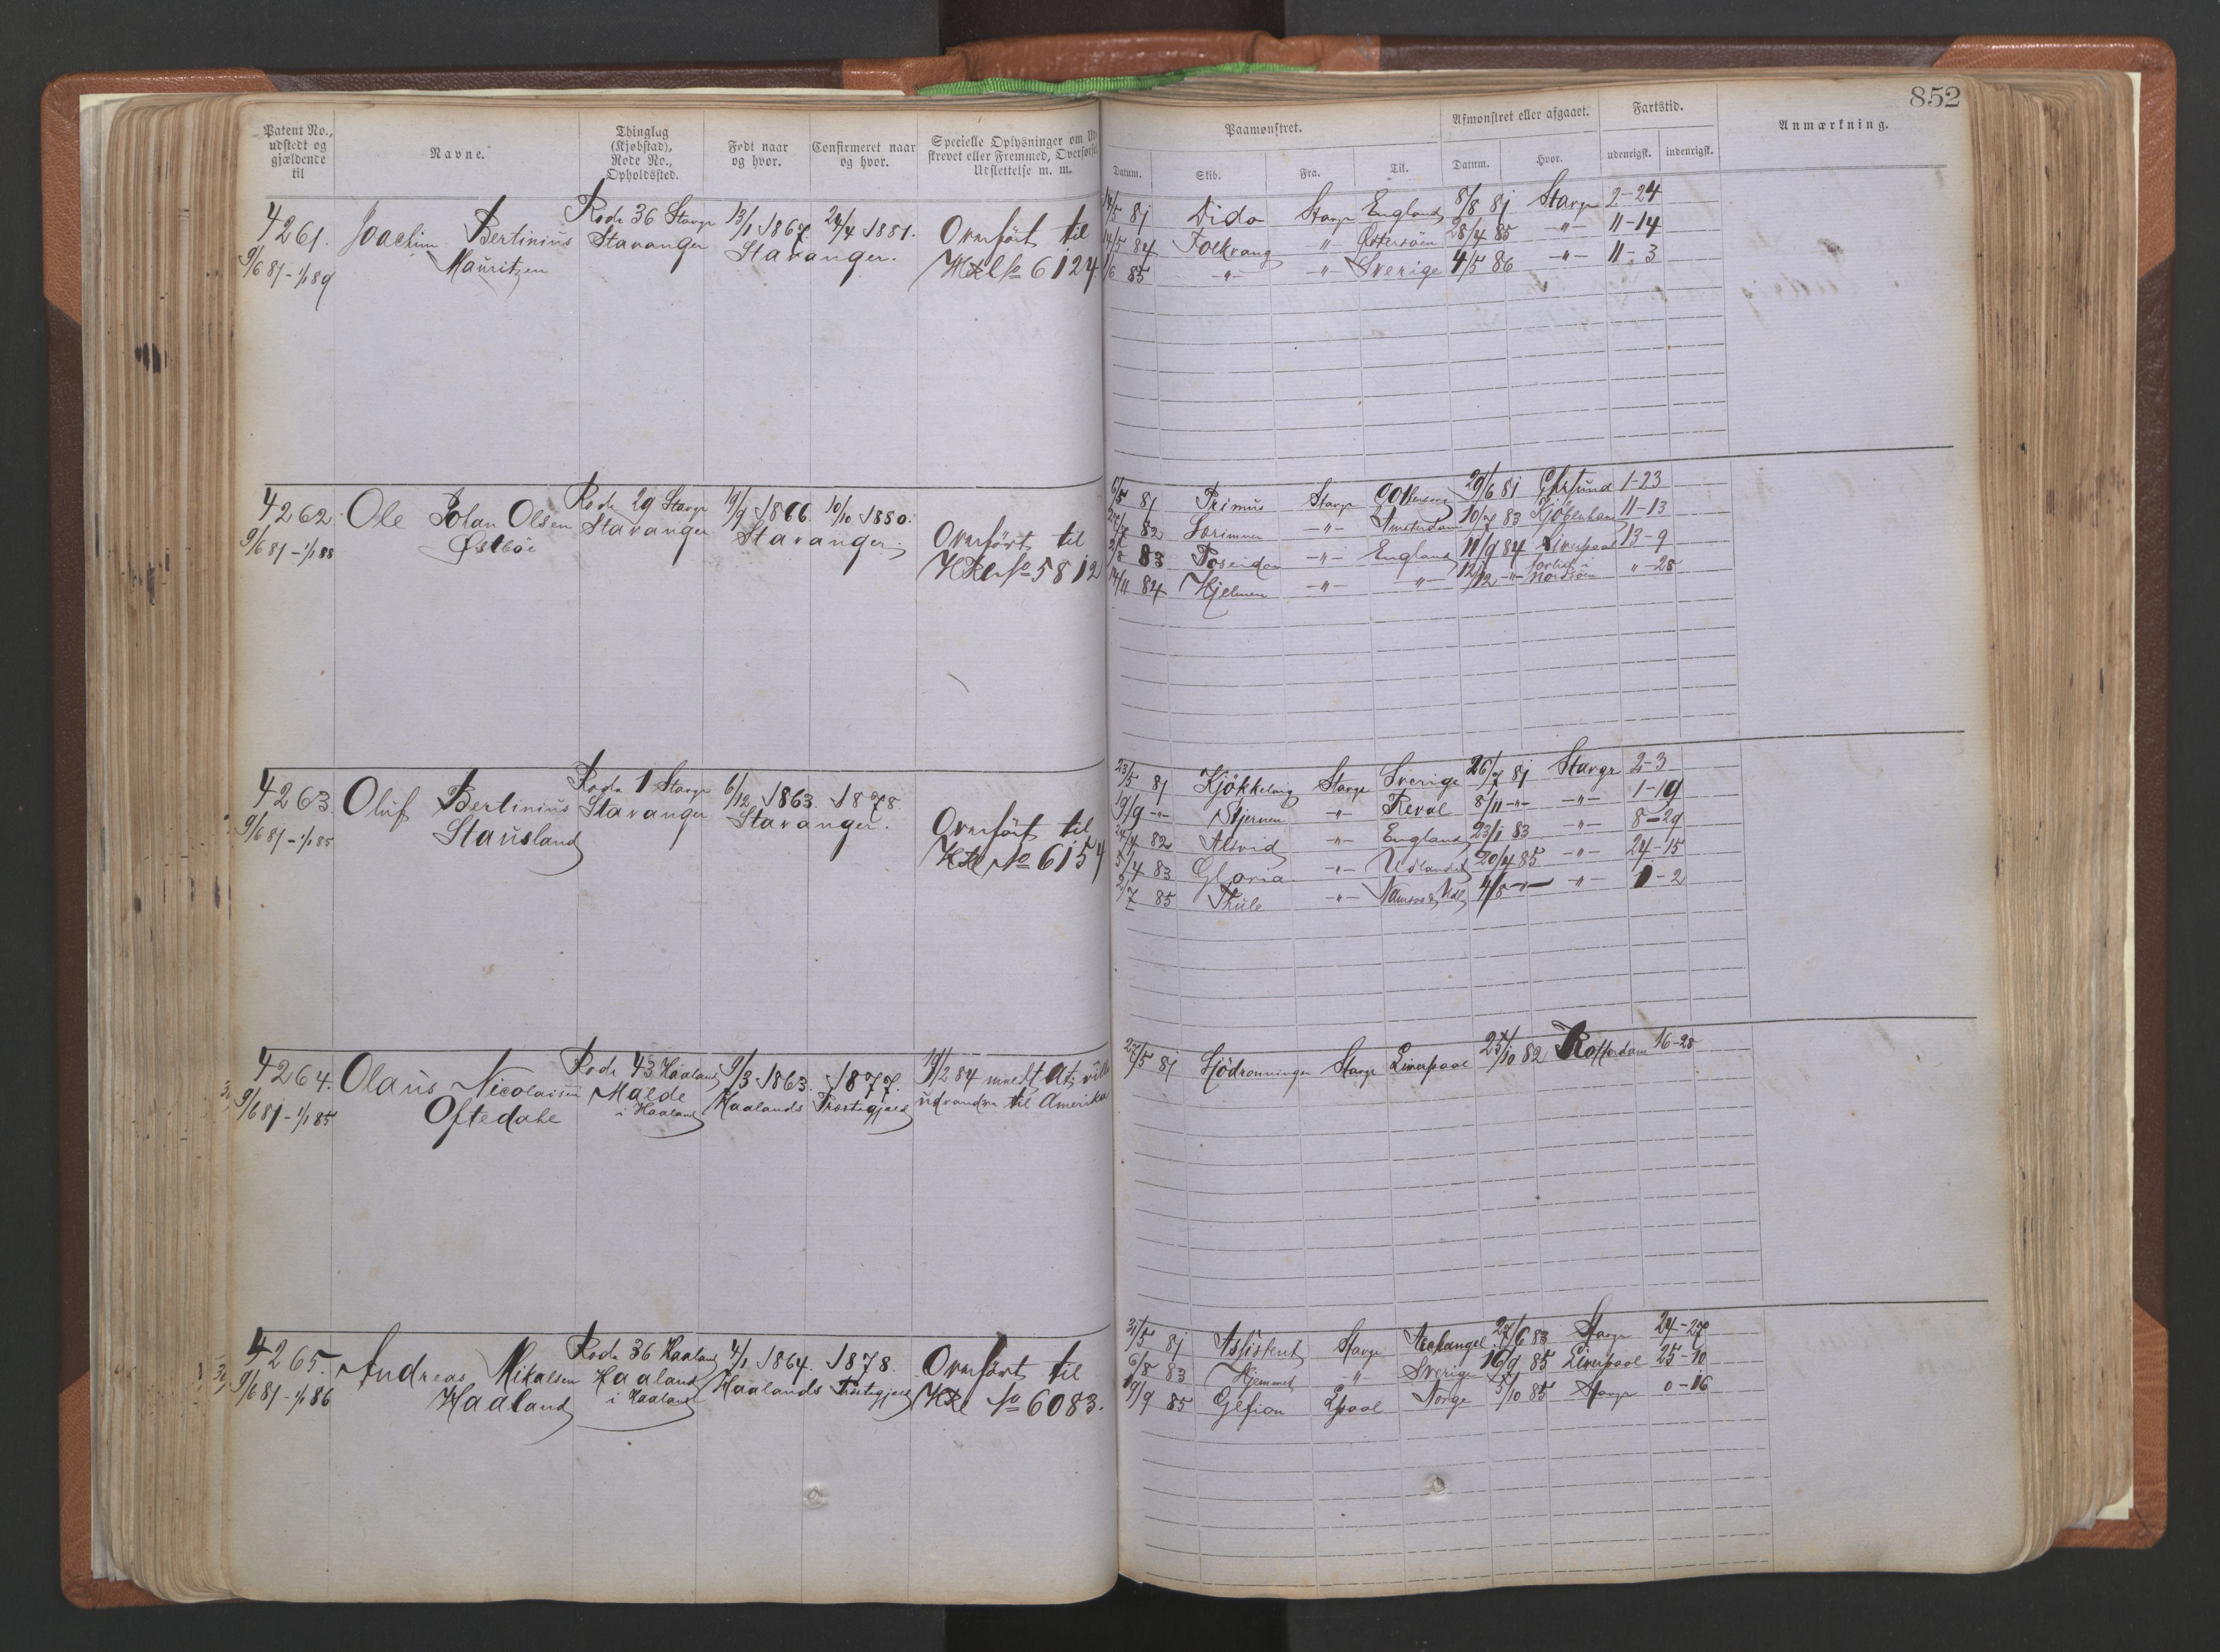 852
Patent No., udstedt og gjældende til
Navne.
Thinglag (Kjøbstad), Rode No., Opholdssted.
Født naar og hvor.
Confirmeret naar og hvor.
Specielle Oplysninger om Ud- strevet eller Fremmed, Overførsel Udslettelse m. m.
Paamønstret.
Datum. Skib. Fra. Til.
Afmønstret eller afgaaet.
Datum. Hvor.
Fartstid.
udenrigsk. indenrigsk.
Anmærkning.
4261. Joachim Bertinius Rode 36 Stavgr 13/1 1867. 24/4 1881. Overført til
9/6 81 - 1/1 89 Mauritzen Stavanger Stavanger. HRl No 6124
14/5 81 Dido Stavgr England 8/8 81 Stavgr 2-24
14/5 84 Folkvang -"- Østersöen 28/4 85 -"- 11-14
1/6 85 -"- -"- Sverige 4/5 86 -"- 11-3
4262. Ole Johan Olsen Rode 29 Stavgr 19/9 1866. 10/10 1880. Overført til
9/6 81 - 1/1 88 Østböe Stavanger Stavanger. HRl No 5812
6/5 81 Primus Stavgr 29/6 81 1-23
82 -"- Amsterdam 10/7 83 Kjøbenhavn 11-13
83 Poseidon -"- England 11/9 84 Liverpool 13-9
14/11 84 Hjelmen -"- -"- 12/12 -"- forlist i Nordsöen "-28
4263. Oluf Bertinius Rode 1 Stavgr 6/12 1863. 1878. Overført til
9/6 81 - 1/1 85 Stausland Stavanger Stavanger. HRl No 6154
23/5 81 Kjökkelvig Stavgr Sverige 26/7 81 Stavgr 2-3
19/9 -"- Stjernen -"- Reval 8/11 -"- -"- 1-19
82 Alsvid -"- England 23/1 83 -"- 8-29
5/4 83 Gloria -"- Udlandet 20/4 85 -"- 24-15
2/7 85 Thule -"- 4/8 -"- -"- 1-2
4264. Olaus Nicolaisen Rode 43 Haaland 9/3 1863. 1877. 19/2 84 meldt At ville
9/6 81 - 1/1 85 Oftedahl Malde i Haaland Haalands Præstegjæld udvandre til Amerika
27/5 81 Hödronningen Stavgr Liverpool 25/10 82 Rotterdam 16-28
4265. Andreas Mikalsen Rode 36 Haaland 4/1 1864. 1878. Overført til
9/6 81 - 1/1 86 Haaland Haaland i Haaland Haalands Præstegjæld HRl No 6083.
31/5 81 Assistent Stavgr Archangel 27/6 83 Stavgr 24-27
6/8 83 Hjemmet -"- Sverige 16/9 85 Liverpool 25-10
19/9 85 Gefion Lpool Norge 5/10 85 Stavgr 0-16